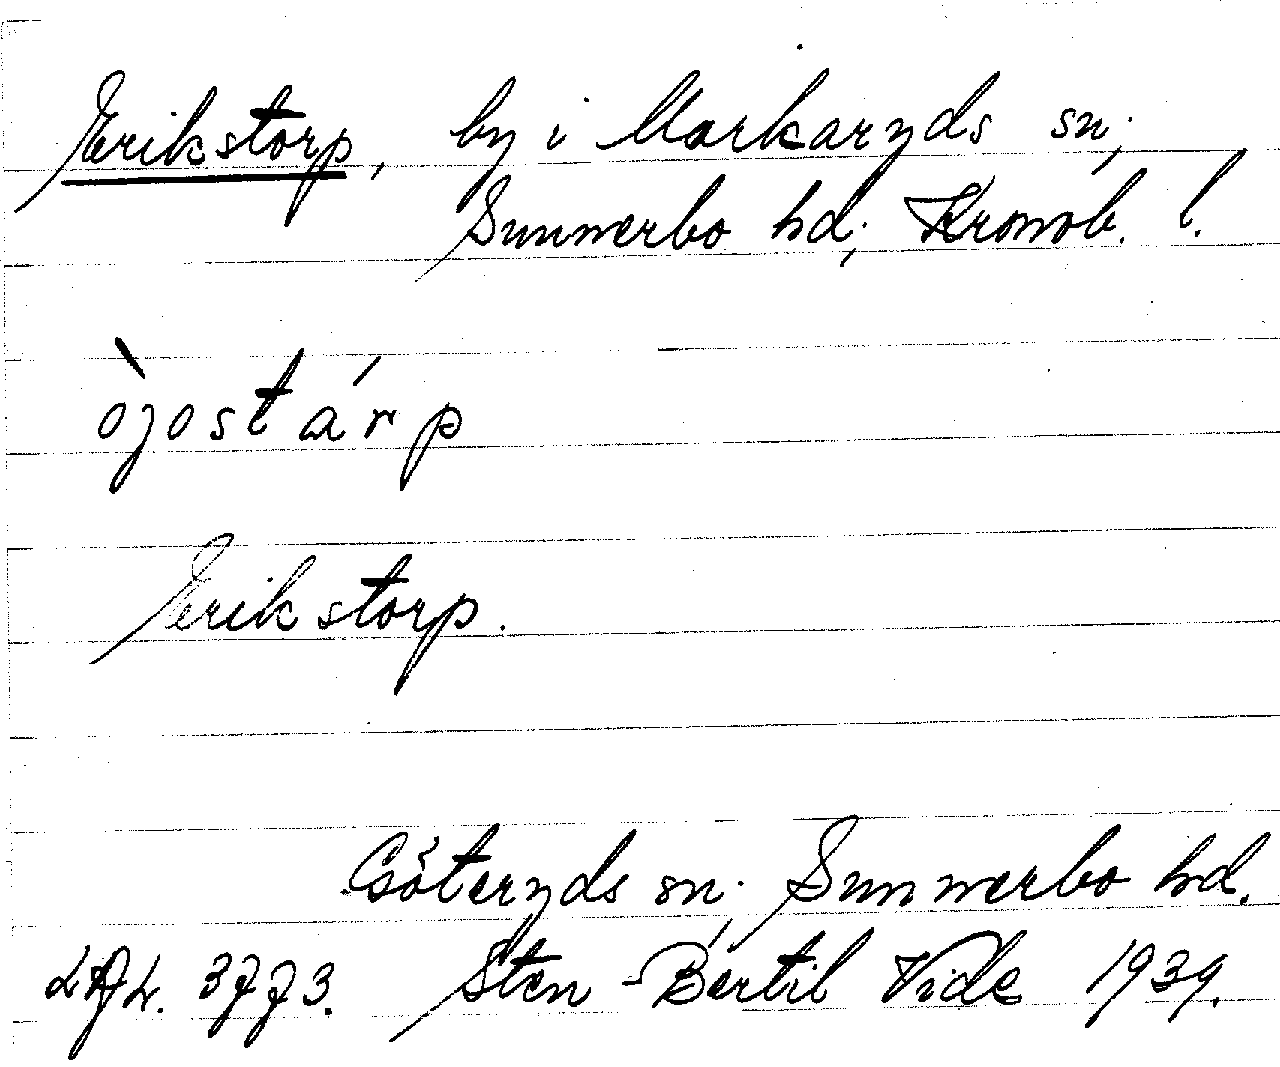 Erikstorp, by i Markaryds sn;
Sunnerbo hd; Kronob. l.
òjostárp
Erikstorp.
Göteryds sn; Sunnerbo hd.
3773. Sten-Bertil Vide 1939.